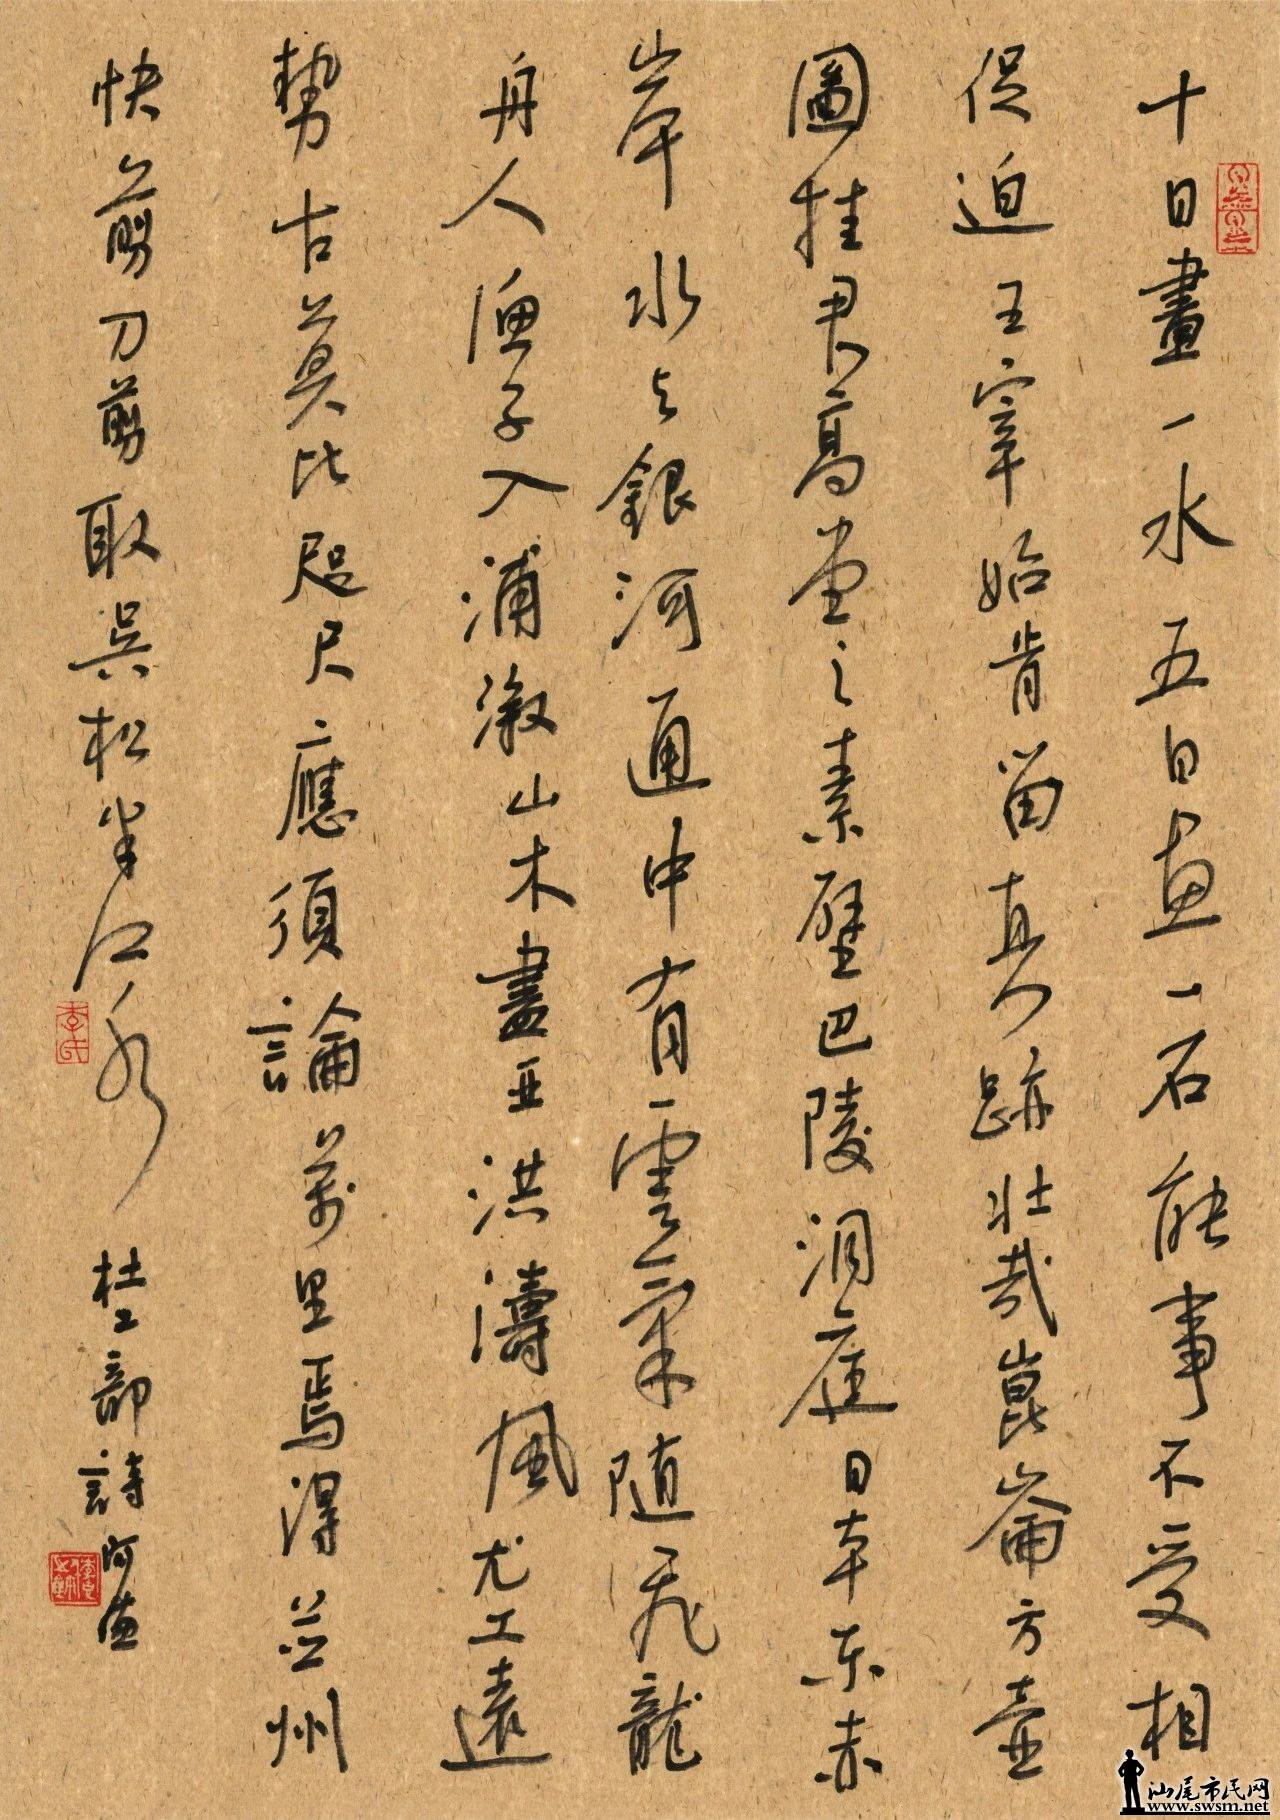 十日畫一水五日画一石能事不受相
促迫王宰始肯留真跡壯哉崑崙方壺
圖挂君高堂之素壁巴陵洞庭日本东赤
岸水与銀河通中有雲氣随飛龍
舟人漁子入浦漵山木盡亞洪濤風尤工遠
勢古莫比咫尺應須論萬里焉得並州
快剪刀剪取吳松半江水
杜工部詩
李氏
汕尾市民网
www.swsm.net